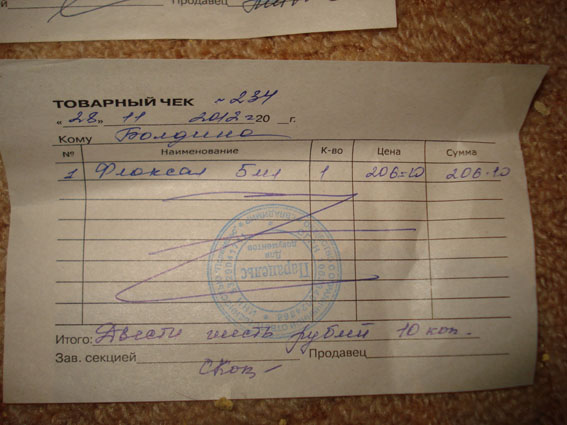 Продавец
ТОВАРНЫЙ ЧЕК №234
"28" 11 2012=20 г.
Кому Болдина
№ Наименование К-во Цена Сумма
1 Флоксал 5мл 1 206=10 206-10
Парацельс
Для документов
Итого: Двести шесть рублей 10 коп.
Зав. секцией Продавец